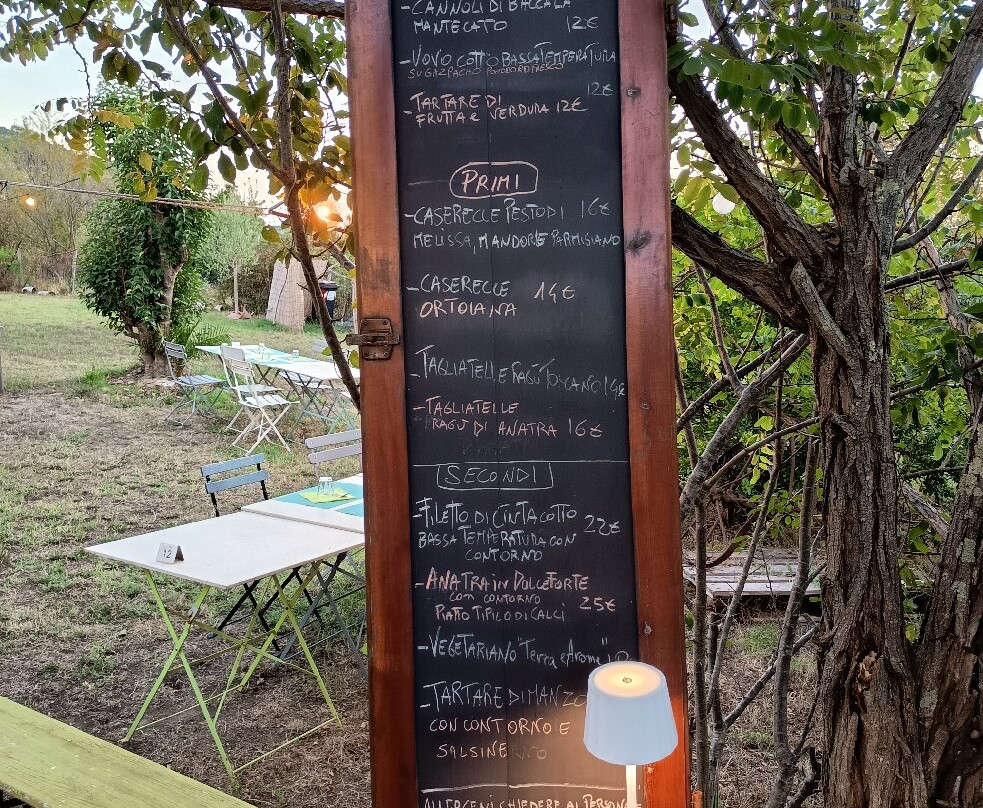 -CANNOLI DI BACCALA
MANTECATO 12€
-VOVO COTTO BASSA TEMPERATURA
SU GAZPACHO POMODORO FRESCO
12€
-TARTARE DI
FRUTTA E VERDURA 12€
PRIMI
-CASERECCE PESTO DI 16€
MELISSA, MANDORLE PARMISIANO
-CASERECCE 14€
ORTOLANA
-TAGLIATELLE RAGÙ TOSCANO 14€
-TAGLIATELLE
RAGÙ DI ANATRA 16€
SECONDI
-FILETTO DI CINTA COTTO 22€
BASSA TEMPERATURA CON
CONTORNO
-ANATRA IN DOLCEFORTE
CON CONTORNO 25€
PIATTO TIPICO DI CALCI
-VEGETARIANO "Terra e Aroma"
-TARTARE DI MANZO
CON CONTORNO E
SALSINE
ALLERGENI CHIEDERE AL PERSONALE
12